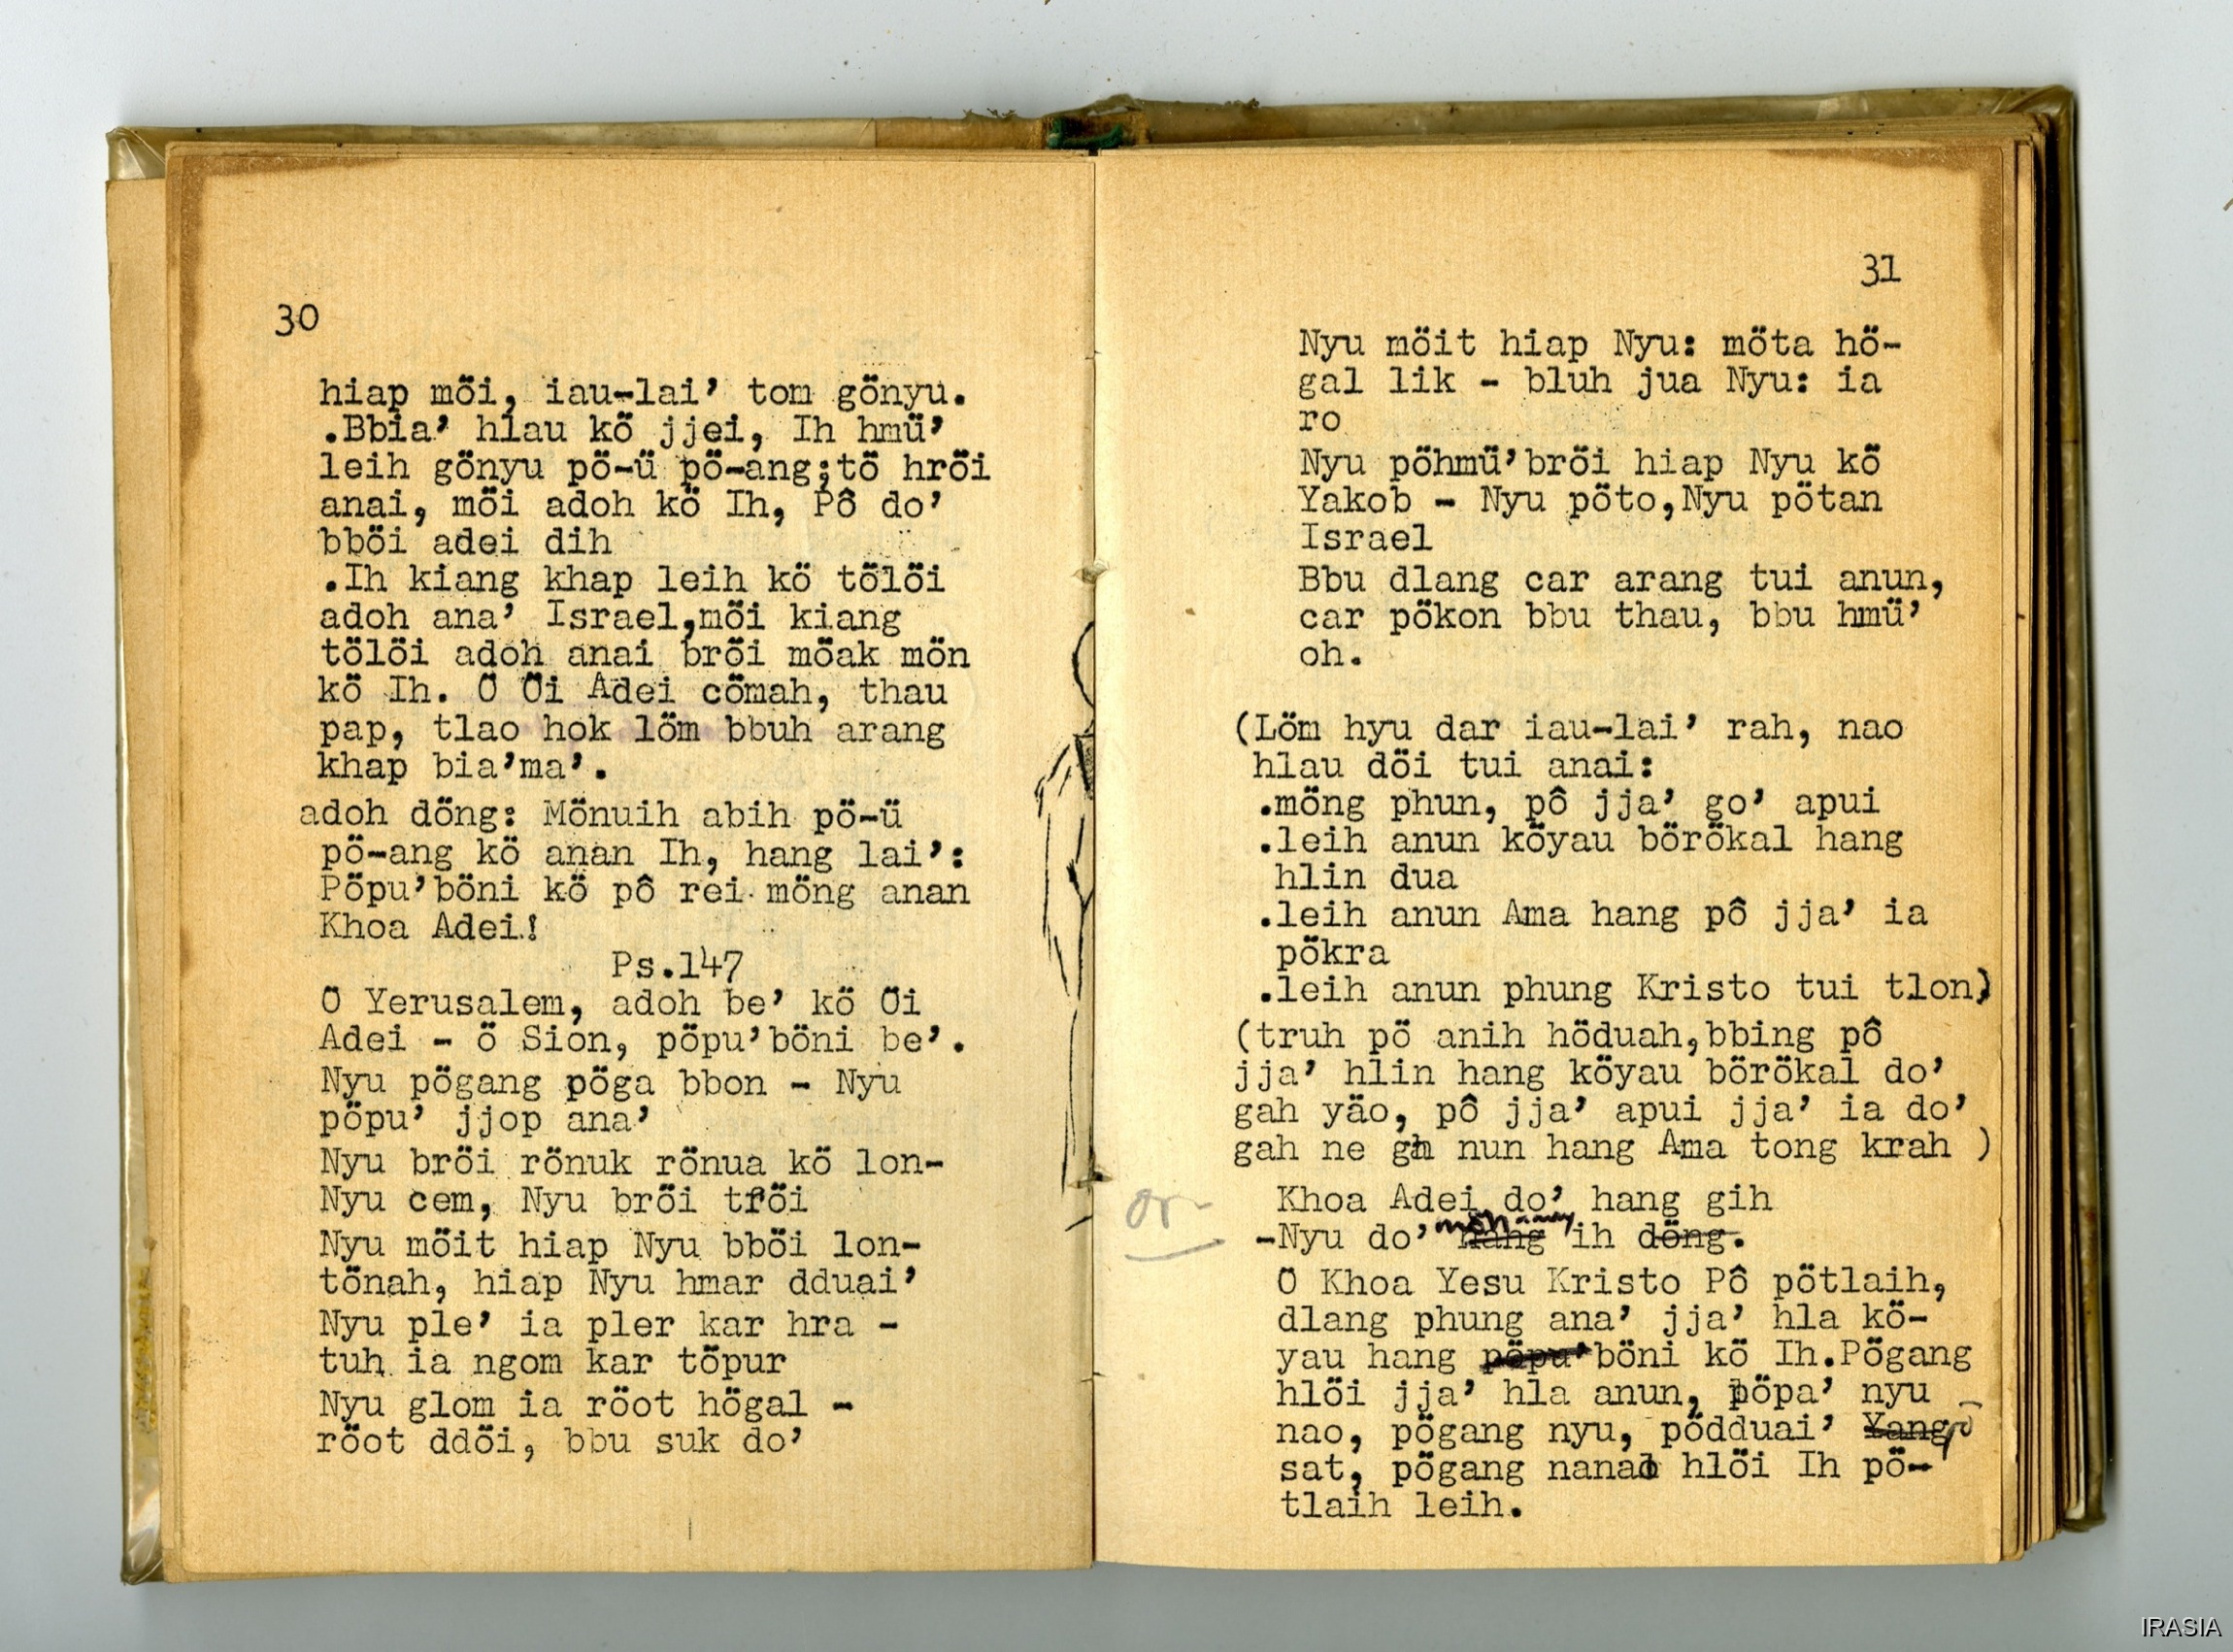 30
hiap mŏ̈i, iau-lai’ tom gönyu.
.Bbia’ hlau kŏ̈ jjei, Ih hmü’
leih gönyu pö-ü pö-ang;tŏ̈ hrŏ̈i
anai, mŏ̈i adoh kŏ̈ Ih, Pô do’
bböi adei dih
.Ih kiang khap leih kŏ̈ tŏ̈lŏ̈i
adoh ana’ Israel,mŏ̈i kiang
tŏ̈lŏ̈i adoh anai brŏ̈i mŏ̈ak mön
kŏ̈ Ih. Ö Öi Adei cŏ̈mah, thau
pap, tlao hok löm bbuh arang
khap bia’ma’.
adoh döng: Mönuih abih pö-ü
pö-ang kŏ̈ anan Ih, hang lai’:
Pöpu’böni kŏ̈ pô rei möng anan
Khoa Adei!
Ps.147
Ö Yerusalem, adoh be’ kŏ̈ Öi
Adei - ŏ̈ Sion, pöpu’böni be’.
Nyu pögang pöga bbon - Nyu
pöpu’ jjop ana’
Nyu bröi rönuk rönua kŏ̈ lon-
Nyu cem, Nyu brŏ̈i trŏ̈i
Nyu möit hiap Nyu bböi lon-
tönah, hiap Nyu hmar dduai’
Nyu ple’ ia pler kar hra -
tuh ia ngom kar töpur
Nyu glom ia röot högal -
rŏ̈ot ddŏ̈i, bbu suk do’
31
Nyu möit hiap Nyu: möta hö-
gal lik - bluh jua Nyu: ia
ro
Nyu pöhmü’bröi hiap Nyu kŏ̈
Yakob - Nyu pöto,Nyu pötan
Israel
Bbu dlang car arang tui anun,
car pökon bbu thau, bbu hmü’
oh.
(Löm hyu dar iau-lai’ rah, nao
hlau döi tui anai:
.möng phun, pô jja’ go’ apui
.leih anun kŏ̈yau börŏ̈kal hang
hlin dua
.leih anun Ama hang pô jja’ ia
pökra
.leih anun phung Kristo tui tlon)
(truh pö anih höduah,bbing pô
jja’ hlin hang köyau börökal do’
gah yäo, pô jja’ apui jja’ ia do’
gah ne gah nun hang Ama tong krah )
Khoa Adei do’ hang gih
or -Nyu do’ hang ih döng.
Ö Khoa Yesu Kristo Pô pötlaih,
dlang phung ana’ jja’ hla kö-
yau hang pöpu’böni kŏ̈ Ih.Pögang
hlŏ̈i jja’ hla anun, pöpa’ nyu
nao, pögang nyu, pödduai’ Yang
sat, pögang nanao hlŏ̈i Ih pö-
tlaih leih.
IRASIA